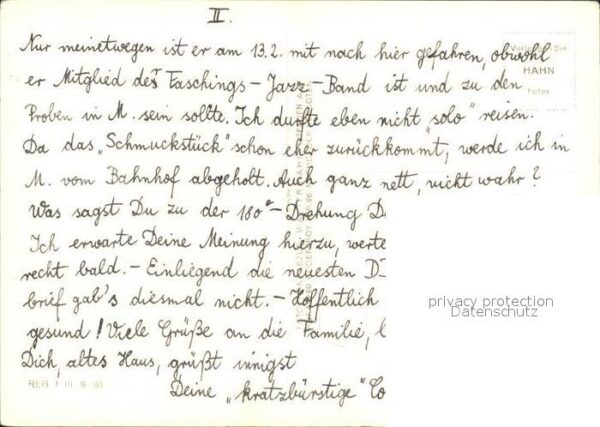 II.
Nur meinetwegen ist er am 13.2. mit nach hier gefahren, obwohl
er Mitglied des Faschings-Jazz-Band ist und zu den
Proben in M. sein sollte. Ich durfte eben nicht "solo" reisen.
Da das „Schmuckstück" schon eher zurückkommt, werde ich in
M. vom Bahnhof abgeholt. Auch ganz nett, nicht wahr?
Was sagst Du zu der 180°-Drehung D
Ich erwarte Deine Meinung hierzu, werte
recht bald. - Einliegend die neuesten D
brief gab's diesmal nicht. - Hoffentlich
gesund! Viele Grüße an die Familie,
Dich, altes Haus, grüßt innigst
Deine „kratzbürstige" Co
HAHN
Fotos
privacy protection
Datenschutz